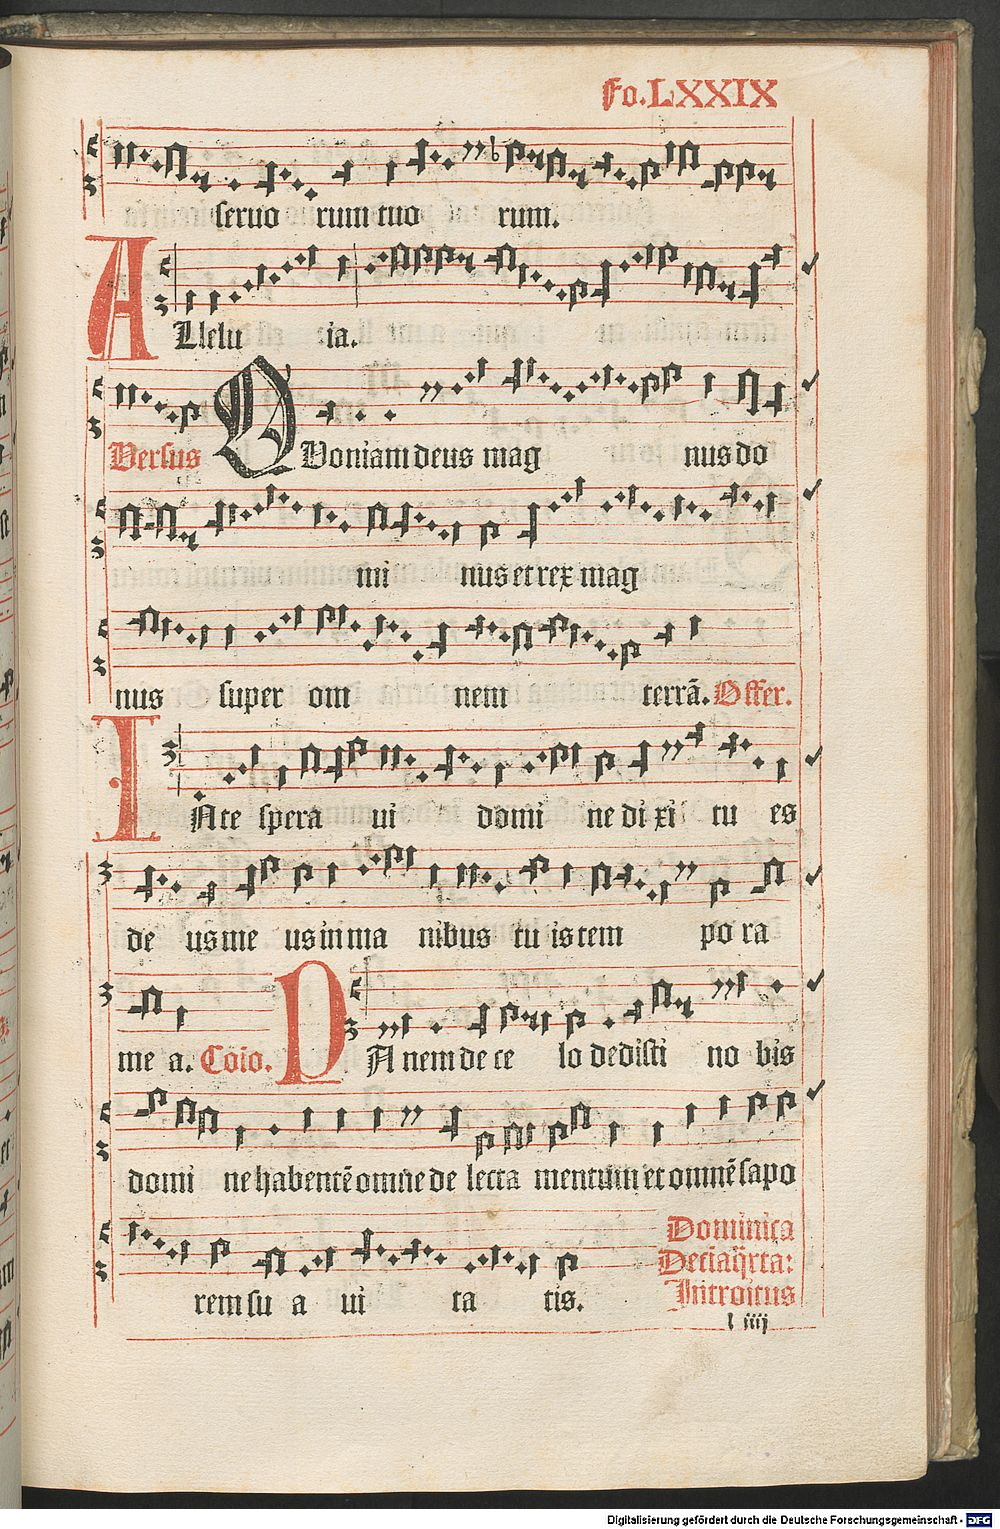 Fo.LXXIX
seruo rum tuo rum.
ALlelu ia.
Versus QUoniam deus mag nus do
mi nus et rex mag
nus super om nem terrā. Offer.
IN te spera ui domi ne di xi tu es
de us me us in ma nibus tu is tem po ra
me a. Coīo. PAnem de ce lo dedisti no bis
domi ne habentē omne de lecta mentum et omnē sapo
rem su a ui ta tis.
Dominica
Introitus
l iiij
Digitalisierung gefördert durch die Deutsche Forschungsgemeinschaft - DFG